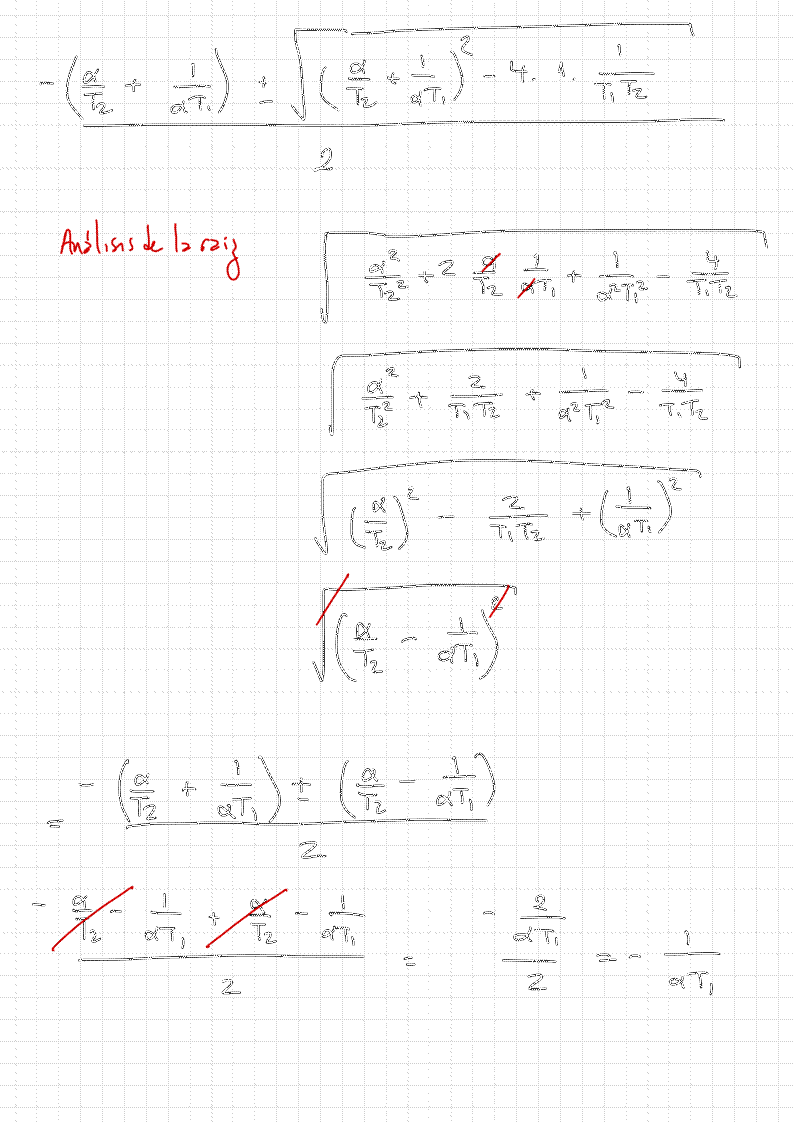 \frac{-\left(\frac{\alpha}{T_2} + \frac{1}{\alpha T_1}\right) \pm \sqrt{\left(\frac{\alpha}{T_2} + \frac{1}{\alpha T_1}\right)^2 - 4 \cdot 1 \cdot \frac{1}{T_1 T_2}}}{2}
Análisis de la raiz
\sqrt{\frac{\alpha^2}{T_2^2} + 2 \frac{\alpha}{T_2} \frac{1}{\alpha T_1} + \frac{1}{\alpha^2 T_1^2} - \frac{4}{T_1 T_2}}
\sqrt{\frac{\alpha^2}{T_2^2} + \frac{2}{T_1 T_2} + \frac{1}{\alpha^2 T_1^2} - \frac{4}{T_1 T_2}}
\sqrt{\left(\frac{\alpha}{T_2}\right)^2 - \frac{2}{T_1 T_2} + \left(\frac{1}{\alpha T_1}\right)^2}
\sqrt{\left(\frac{\alpha}{T_2} - \frac{1}{\alpha T_1}\right)^2}
= \frac{-\left(\frac{\alpha}{T_2} + \frac{1}{\alpha T_1}\right) \pm \left(\frac{\alpha}{T_2} - \frac{1}{\alpha T_1}\right)}{2}
\frac{-\frac{\alpha}{T_2} - \frac{1}{\alpha T_1} + \frac{\alpha}{T_2} - \frac{1}{\alpha T_1}}{2} = \frac{-\frac{2}{\alpha T_1}}{2} = -\frac{1}{\alpha T_1}